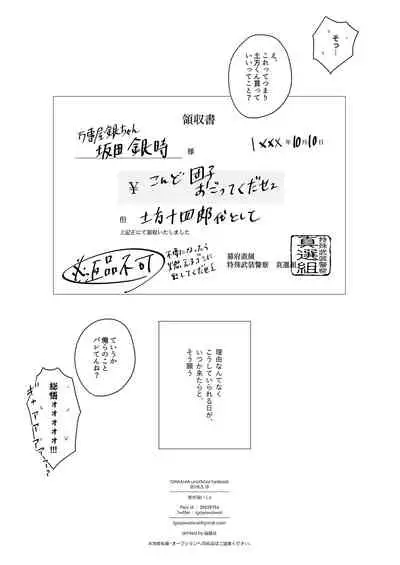 そっ…
え、
これってつまり
土方くん貰って
いいってこと?
領収書
万事屋銀ちゃん
坂田 銀時 様
1xxx年10月10日
¥ こんど 団子
おごってくだせェ
但 土方十四郎 代として
上記正にて領収いたしました
※返品不可
不要になったら
燃えるゴミに
出してくだせェ
幕府直属
特殊武装警察 真選組
特殊武装警察
真選組
ていうか
俺らのこと
バレてんね?
総悟ォオォオォオ!!!
理由なんてなく
こうしていられる日が、
いつか来たらと、
そう願う
GINTAMA unofficial fanbook